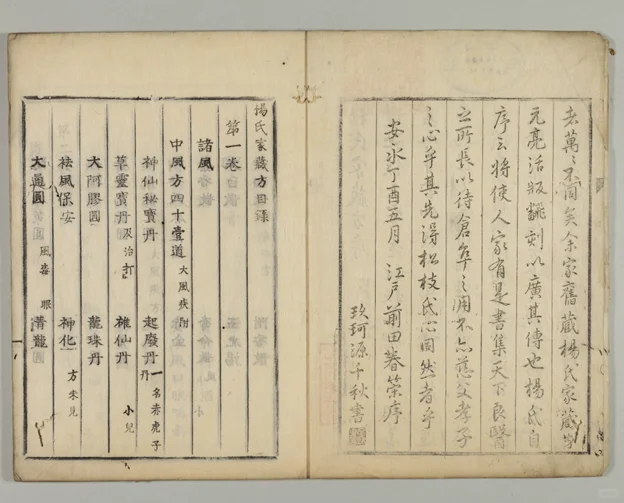 者萬〻不同矣余家舊藏楊氏家藏方
元亮活版翻刻以廣其傳也楊氏自
序云將使人家有是書集天下良醫
之所長以待倉卒之用不亦慈父孝子
之心乎其先得松枝氏心同然者乎
安永丁酉五月 江戸前田 序
玖珂源千秋書
楊氏家藏方目錄
第一卷
諸風
中風方四十壹道 大風疾附
神仙秘寶丹 起廢丹 一名赤虎子丹
草靈寶丹 又治打 雄仙丹 小兒
大阿膠圓 龍珠丹
祛風保安 神化 方未見
大通圓 風毒 眼 青龍